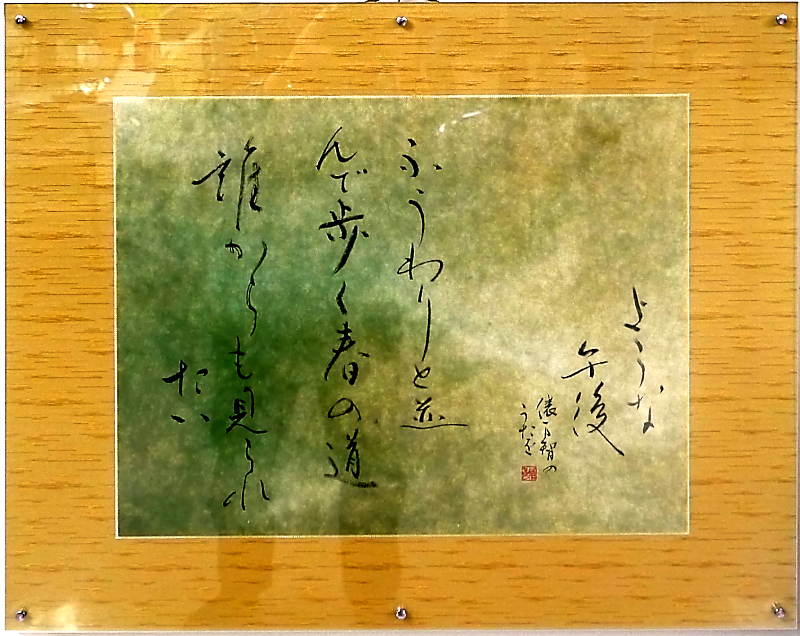 ふうわりと並
んで歩く春の道
誰からも見られ
たい
ような
午後
俵万智の
うたを